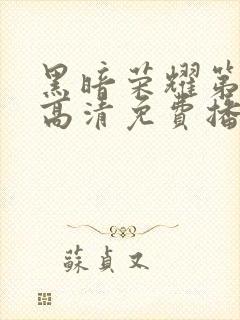 黑暗荣耀第
高清免費播
蘇貞又